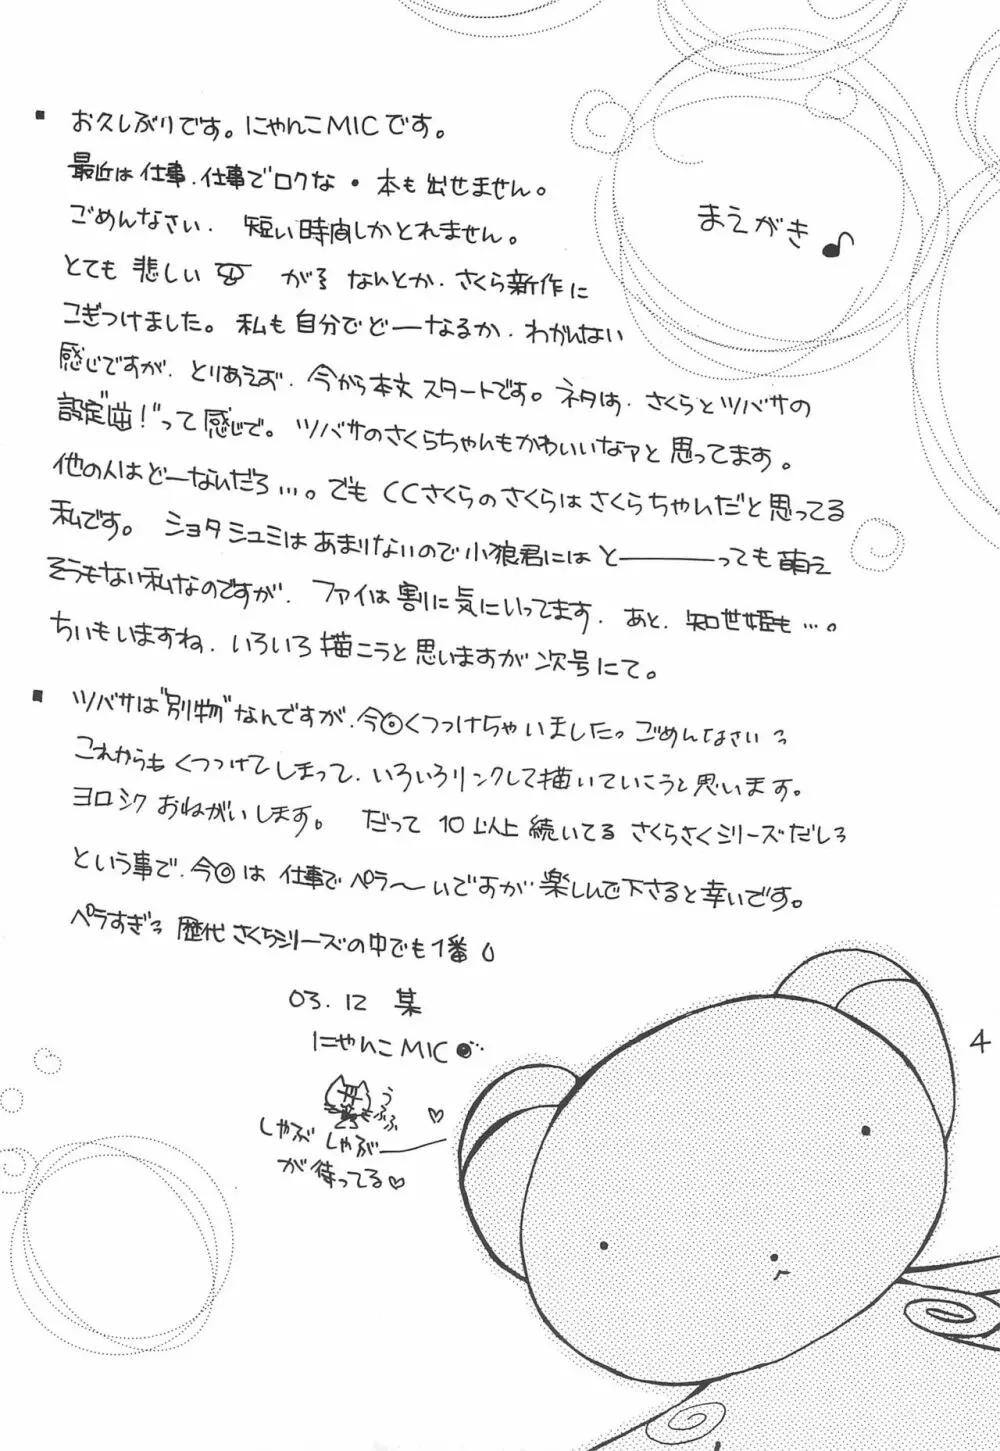 まえがき♪
■ お久しぶりです。にゃんこMICです。
最近は仕事、仕事でロクな・本も出せません。
ごめんなさい、短い時間しかとれません。
とても悲しい が なんとか、さくら新作に
こぎつけました。私も自分でどーなるか、わかんない
感じですが、とりあえず、今から本文スタートです。ネタは、さくらとツバサの
設定"逆!"って感じで。ツバサのさくらちゃんもかわいいなァと思ってます。
他の人はどーなんだろ…。でもCCさくらのさくらはさくらちゃんだと思ってる
私です。ショタシュミはあまりないので小狼君にはと―――っても萌え
そうもない私なのですが、ファイは割に気にいってます、あと、知世姫も…。
ちいもいますね、いろいろ描こうと思いますが次号にて。
■ ツバサは"別物"なんですが、今回くっつけちゃいました。ごめんなさいっ
これからもくっつけてしまって、いろいろリンクして描いていこうと思います。
ヨロシクおねがいします。だって10以上続いてるさくらさくシリーズだしっ
という事で、今回は仕事でペラ〜いですが楽しんで下さると幸いです。
ペラすぎっ 歴代さくらシリーズの中でも1番
03.12 某
にゃんこMIC
うふふ
しゃぶしゃぶー
が待ってる♡
4